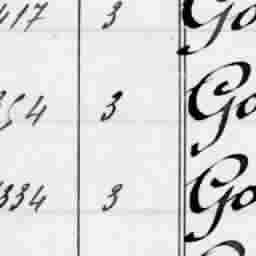 417 3 Go
354 3 Go
334 3 Go